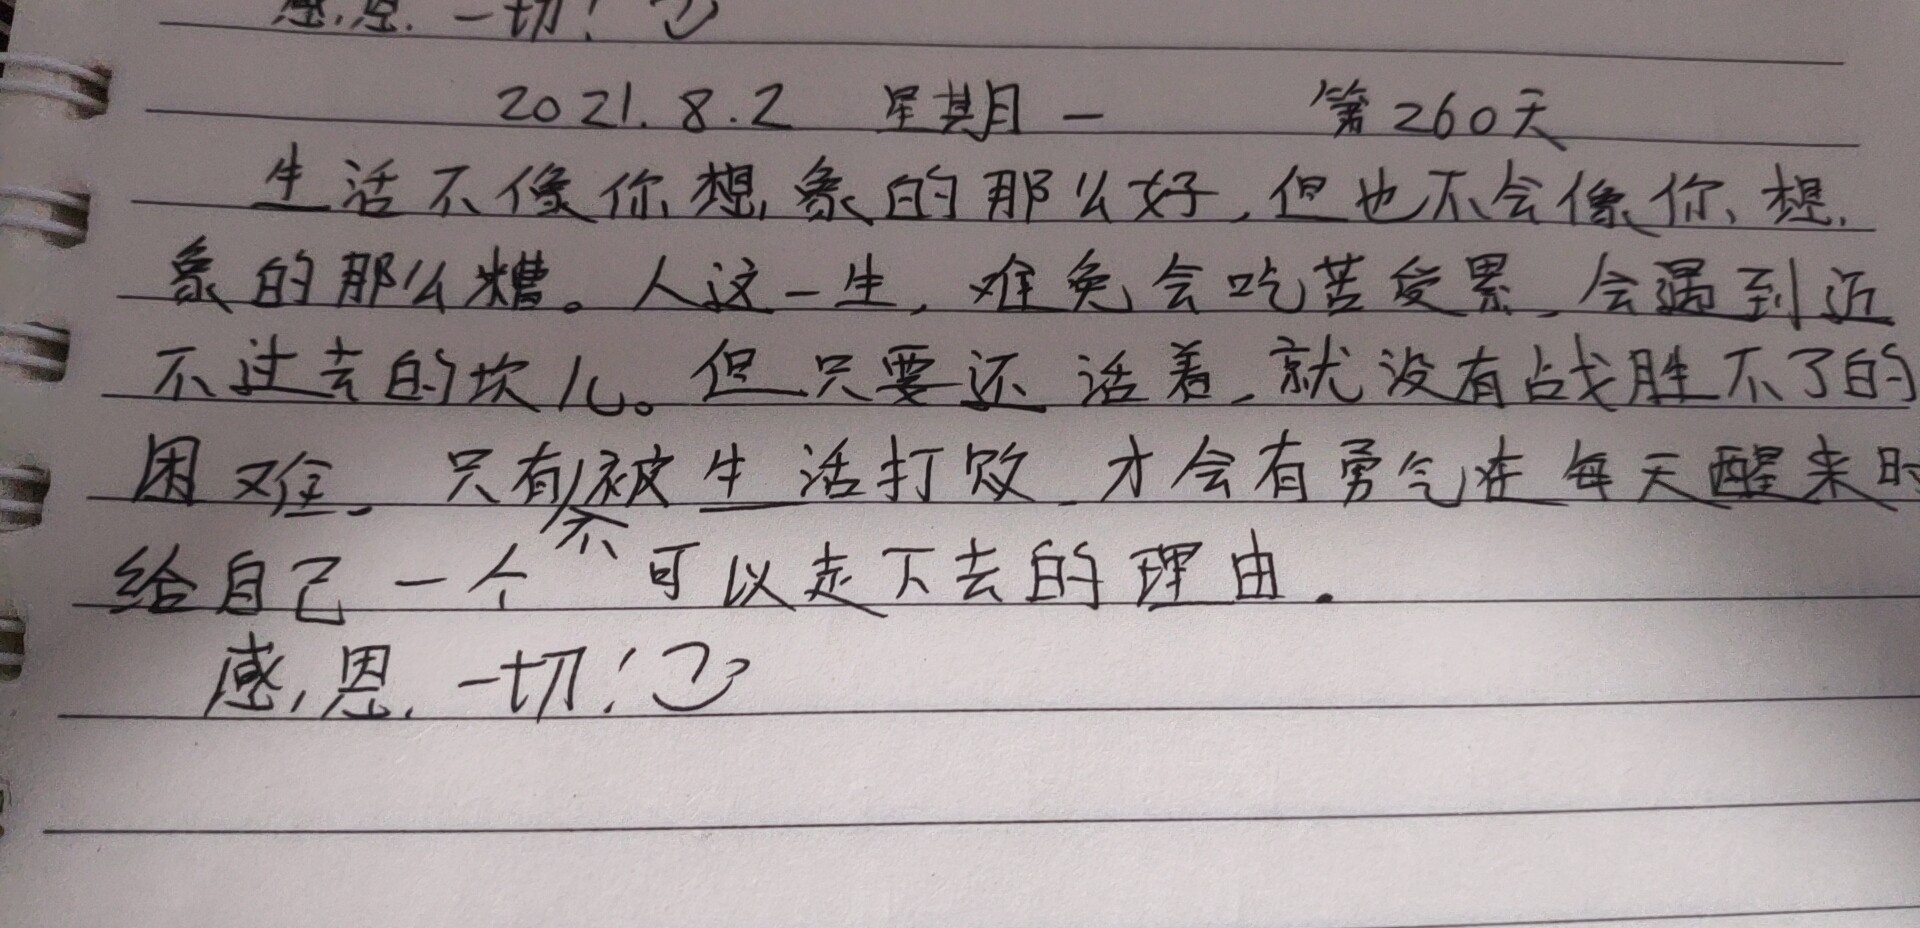 感恩一切!
2021.8.2 星期一 第260天
生活不像你想象的那么好,但也不会像你想
象的那么糟。人这一生,难免会吃苦受累,会遇到迈
不过去的坎儿。但只要还活着,就没有战胜不了的
困难,只有不被生活打败,才会有勇气在每天醒来时
给自己一个可以走下去的理由.
感恩一切!